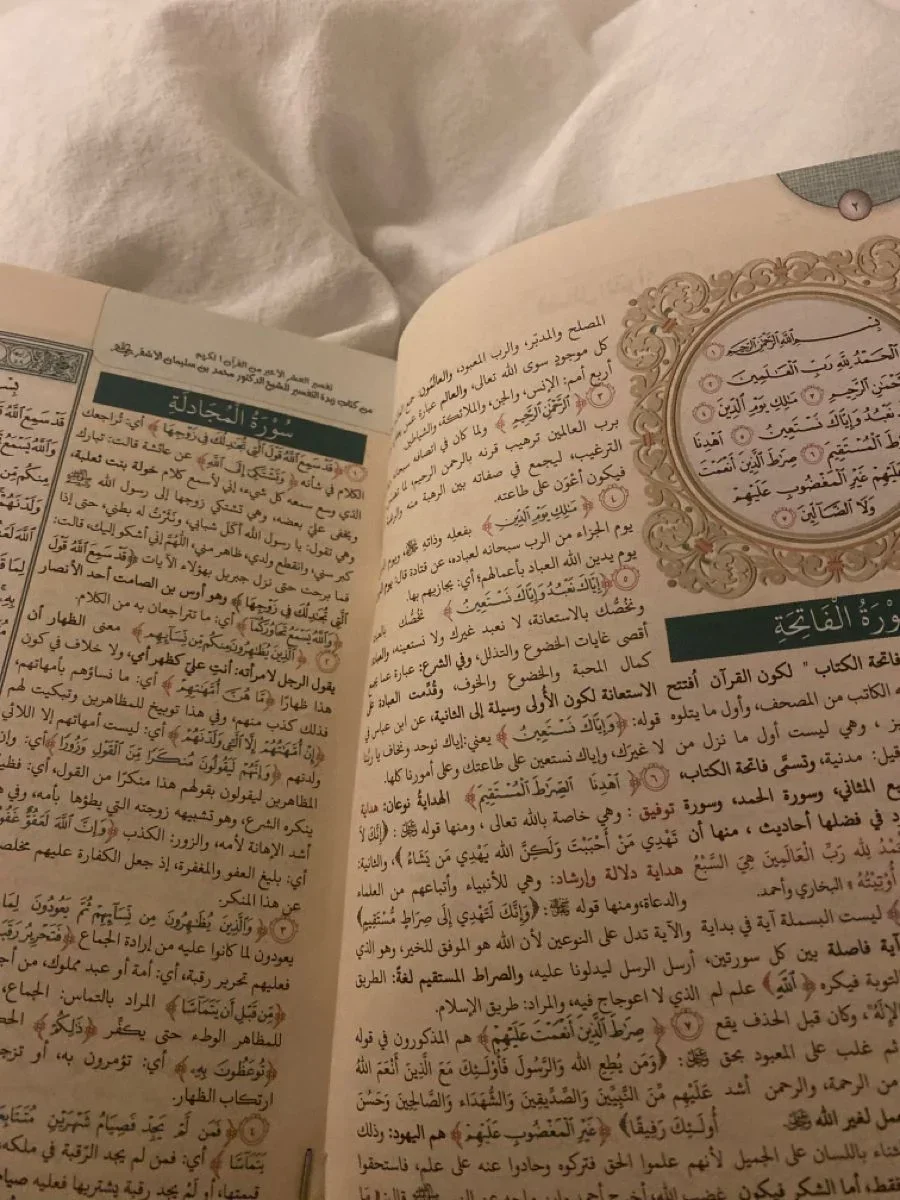 ٢
بِسْمِ ٱللَّهِ ٱلرَّحْمَٰنِ ٱلرَّحِيمِ ١
ٱلْحَمْدُ لِلَّهِ رَبِّ ٱلْعَٰلَمِينَ ٢
ٱلرَّحْمَٰنِ ٱلرَّحِيمِ ٣ مَٰلِكِ يَوْمِ ٱلدِّينِ ٤
نَعْبُدُ وَإِيَّاكَ نَسْتَعِينُ ٥ ٱهْدِنَا
ٱلصِّرَٰطَ ٱلْمُسْتَقِيمَ ٦ صِرَٰطَ ٱلَّذِينَ أَنْعَمْتَ
عَلَيْهِمْ غَيْرِ ٱلْمَغْضُوبِ عَلَيْهِمْ
وَلَا ٱلضَّآلِّينَ ٧
سُورَةُ الْفَاتِحَةِ
فاتحة الكتاب " لكون القرآن أفتتح
الكاتب من المصحف، وأول ما يتلوه
وهي ليست أول ما نزل من
قيل: مدنية، وتسمَّى فاتحة الكتاب،
المثاني، وسورة الحمد، وسورة
في فضلها أحاديث ، منها أن
لِلَّهِ رَبِّ الْعَالَمِينَ هِيَ السَّبْعُ
أُوتِيتُهُ» البخاري وأحمد.
ليست البسملة آية في بداية
آية فاصلة بين كل سورتين،
التوبة فيكره ﴿ٱللَّهِ﴾ علم لم
وكان قبل الحذف يقع
ثم غلب على المعبود بحق
من الرحمة، والرحمن أشد
لغير الله
باللسان على الجميل
أما الشكر فيكون
المصلح والمدبّر، والرب المعبود، والعالمون:
كل موجودٍ سوى الله تعالى، والعالم عبارة عن
أربع أمم: الإنس، والجن، والملائكة، والشياطين
٣ ﴿ٱلرَّحْمَٰنِ ٱلرَّحِيمِ﴾ ولما كان في اتصافه
برب العالمين ترهيب قرنه بالرحمن الرحيم، لما
الترغيب، ليجمع في صفاته بين الرهبة منه
فيكون أعْوَن على طاعته.
٤ ﴿مَٰلِكِ يَوْمِ ٱلدِّينِ﴾ بفعله وذاتِهِ
يوم الجزاء من الرب سبحانه لعباده، عن قتادة قال:
يوم يدين الله العباد بأعمالهم؛ أي: يجازيهم بها.
٥ ﴿إِيَّاكَ نَعْبُدُ وَإِيَّاكَ نَسْتَعِينُ﴾ نخصُّك
ونخصُّك بالاستعانة، لا نعبد غيرك ولا نستعينه،
أقصى غايات الخضوع والتذلل، وفي الشرع: عبارة عما
كمال المحبة والخضوع والخوف، وقُدِّمت العبادة على
الاستعانة لكون الأولى وسيلة إلى الثانية، عن ابن عباس في
قوله: ﴿وَإِيَّاكَ نَسْتَعِينُ﴾ يعني: إياك نوحد ونخاف يا ربنا
لا غيرَك، وإياك نستعين على طاعتك وعلى أمورنا كلها.
٦ ﴿ٱهْدِنَا ٱلصِّرَٰطَ ٱلْمُسْتَقِيمَ﴾ الهدايةُ نوعان: هداية
توفيق : وهي خاصة بالله تعالى ، ومنها قوله ﷺ : ﴿إِنَّكَ لاَ
تَهْدِي مَنْ أَحْبَبْتَ وَلَكِنَّ الله يَهْدِي مَن يَشَاءُ﴾، والثانية:
هداية دلالة وإرشاد: وهي للأنبياء وأتباعهم من العلماء
والدعاة، ومنها قوله ﷺ: ﴿وَإِنَّكَ لَتَهْدِي إِلَى صِرَاطٍ مُسْتَقِيمٍ﴾
والآية تدل على النوعين لأن الله هو الموفق للخير، وهو الذي
أرسل الرسل ليدلونا عليه، والصراط المستقيم لغةً: الطريق
الذي لا اعوجاج فيه، والمراد: طريق الإسلام.
٧ ﴿صِرَٰطَ ٱلَّذِينَ أَنْعَمْتَ عَلَيْهِمْ﴾ هم المذكورون في قوله
ﷺ: ﴿وَمَن يُطِعِ اللهَ وَالرَّسُولَ فَأُوْلَـئِكَ مَعَ الَّذِينَ أَنْعَمَ اللهُ
عَلَيْهِم مِّنَ النَّبِيِّينَ وَالصِّدِّيقِينَ وَالشُّهَدَاء وَالصَّالِحِينَ وَحَسُنَ
أُولَـئِكَ رَفِيقًا﴾ ﴿غَيْرِ ٱلْمَغْضُوبِ عَلَيْهِمْ﴾ هم اليهود: وذلك
لأنهم علموا الحق فتركوه وحادوا عنه على علم، فاستحقوا
غضب الله، أخرج أحمد
تفسير العشر الأخير من القرآن الكريم
من كتاب زبدة التفسير للشيخ الدكتور محمد بن سليمان الأشقر
سُورَةُ الْمُجَادلَةِ
١ ﴿قَدْ سَمِعَ ٱللَّهُ قَوْلَ ٱلَّتِي تُجَٰدِلُكَ فِي زَوْجِهَا﴾ أي: تُراجعك
الكلام في شأنه ﴿وَتَشْتَكِىٓ إِلَى ٱللَّهِ﴾ عن عائشة قالت: تبارك
الذي وسع سمعه كل شيء، إني لأسمع كلام خولة بنت ثعلبة،
ويخفى عليّ بعضه، وهي تشتكي زوجها إلى رسول الله ﷺ
وهي تقول: يا رسول الله أكل شبابي، ونَثَرْتُ له بطني، حتى إذا
كبر سني، وانقطع ولدي، ظاهر مني، اللهُمَّ إني أشكو إليك، قالت:
فما برحت حتى نزل جبريل بهؤلاء الآيات ﴿قَدْ سَمِعَ ٱللَّهُ قَوْلَ
ٱلَّتِي تُجَٰدِلُكَ فِي زَوْجِهَا﴾ وهو أوس بن الصامت أحد الأنصار
﴿وَٱللَّهُ يَسْمَعُ تَحَاوُرَكُمَآ﴾ أي: ما تتراجعان به من الكلام.
٢ ﴿ٱلَّذِينَ يُظَٰهِرُونَ مِنكُم مِّن نِّسَآئِهِم﴾ معنى الظهار أن
يقول الرجل لامرأته: أنتِ عليّ كظهر أمي، ولا خلاف في كون
هذا ظهارًا ﴿مَّا هُنَّ أُمَّهَٰتِهِمْ﴾ أي: ما نساؤهم بأمهاتهم،
فذلك كذب منهم، وفي هذا توبيخ للمظاهرين وتبكيت لهم
﴿إِنْ أُمَّهَٰتُهُمْ إِلَّا ٱلَّٰٓـِٔي وَلَدْنَهُمْ﴾ أي: ليست أمهاتهم إلا اللائي
ولدنهم ﴿وَإِنَّهُمْ لَيَقُولُونَ مُنكَرًا مِّنَ ٱلْقَوْلِ وَزُورًا﴾ أي: وإن
المظاهرين ليقولون بقولهم هذا منكرًا من القول، أي: فظيعًا
ينكره الشرع، وهو تشبيهه زوجته التي يطؤها بأمه، وفي هذا
أشد الإهانة لأمه، والزور: الكذب ﴿وَإِنَّ ٱللَّهَ لَعَفُوٌّ غَفُورٌ﴾
أي: بليغ العفو والمغفرة، إذ جعل الكفارة عليهم مخلصة
عن هذا المنكر.
٣ ﴿وَٱلَّذِينَ يُظَٰهِرُونَ مِن نِّسَآئِهِمْ ثُمَّ يَعُودُونَ لِمَا
يعودون لما كانوا عليه من إرادة الجماع ﴿فَتَحْرِيرُ رَقَبَةٍ
فعليهم تحرير رقبة، أي: أمة أو عبد مملوك، من أجل
﴿مِّن قَبْلِ أَن يَتَمَآسَّا﴾ المراد بالتماس: الجماع،
للمظاهر الوطء حتى يكفّر ﴿ذَٰلِكُمْ﴾
﴿تُوعَظُونَ بِهِۦ﴾ أي: تؤمرون به، أو
ارتكاب الظهار.
٤ ﴿فَمَن لَّمْ يَجِدْ فَصِيَامُ شَهْرَيْنِ مُتَتَابِعَيْنِ
يَتَمَآسَّا﴾ أي: فمن لم يجد الرّقبة في ملكه،
قيمتها، أو لَمْ يجد رقبة يشتريها فعليه صيام
قَدْ سَمِعَ ٱللَّهُ
وَٱللَّهُ يَسْمَعُ
مِنكُم مِّن
وَلَدْنَهُمْ